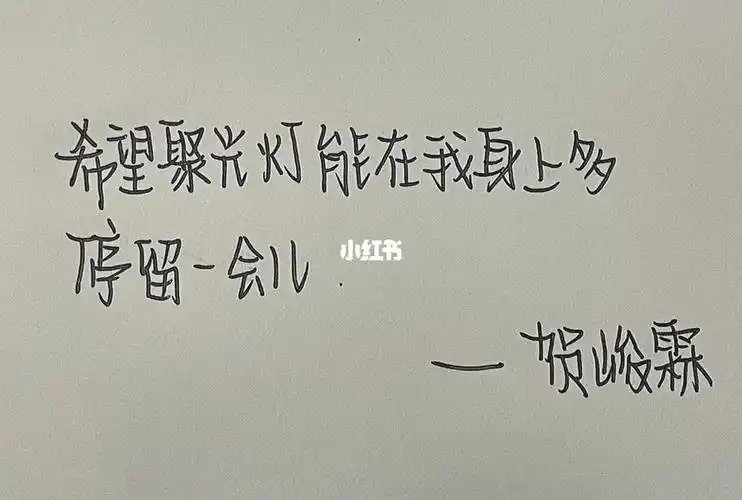 希望聚光灯能在我身上多
停留一会儿.
小红书
— 贺峻霖